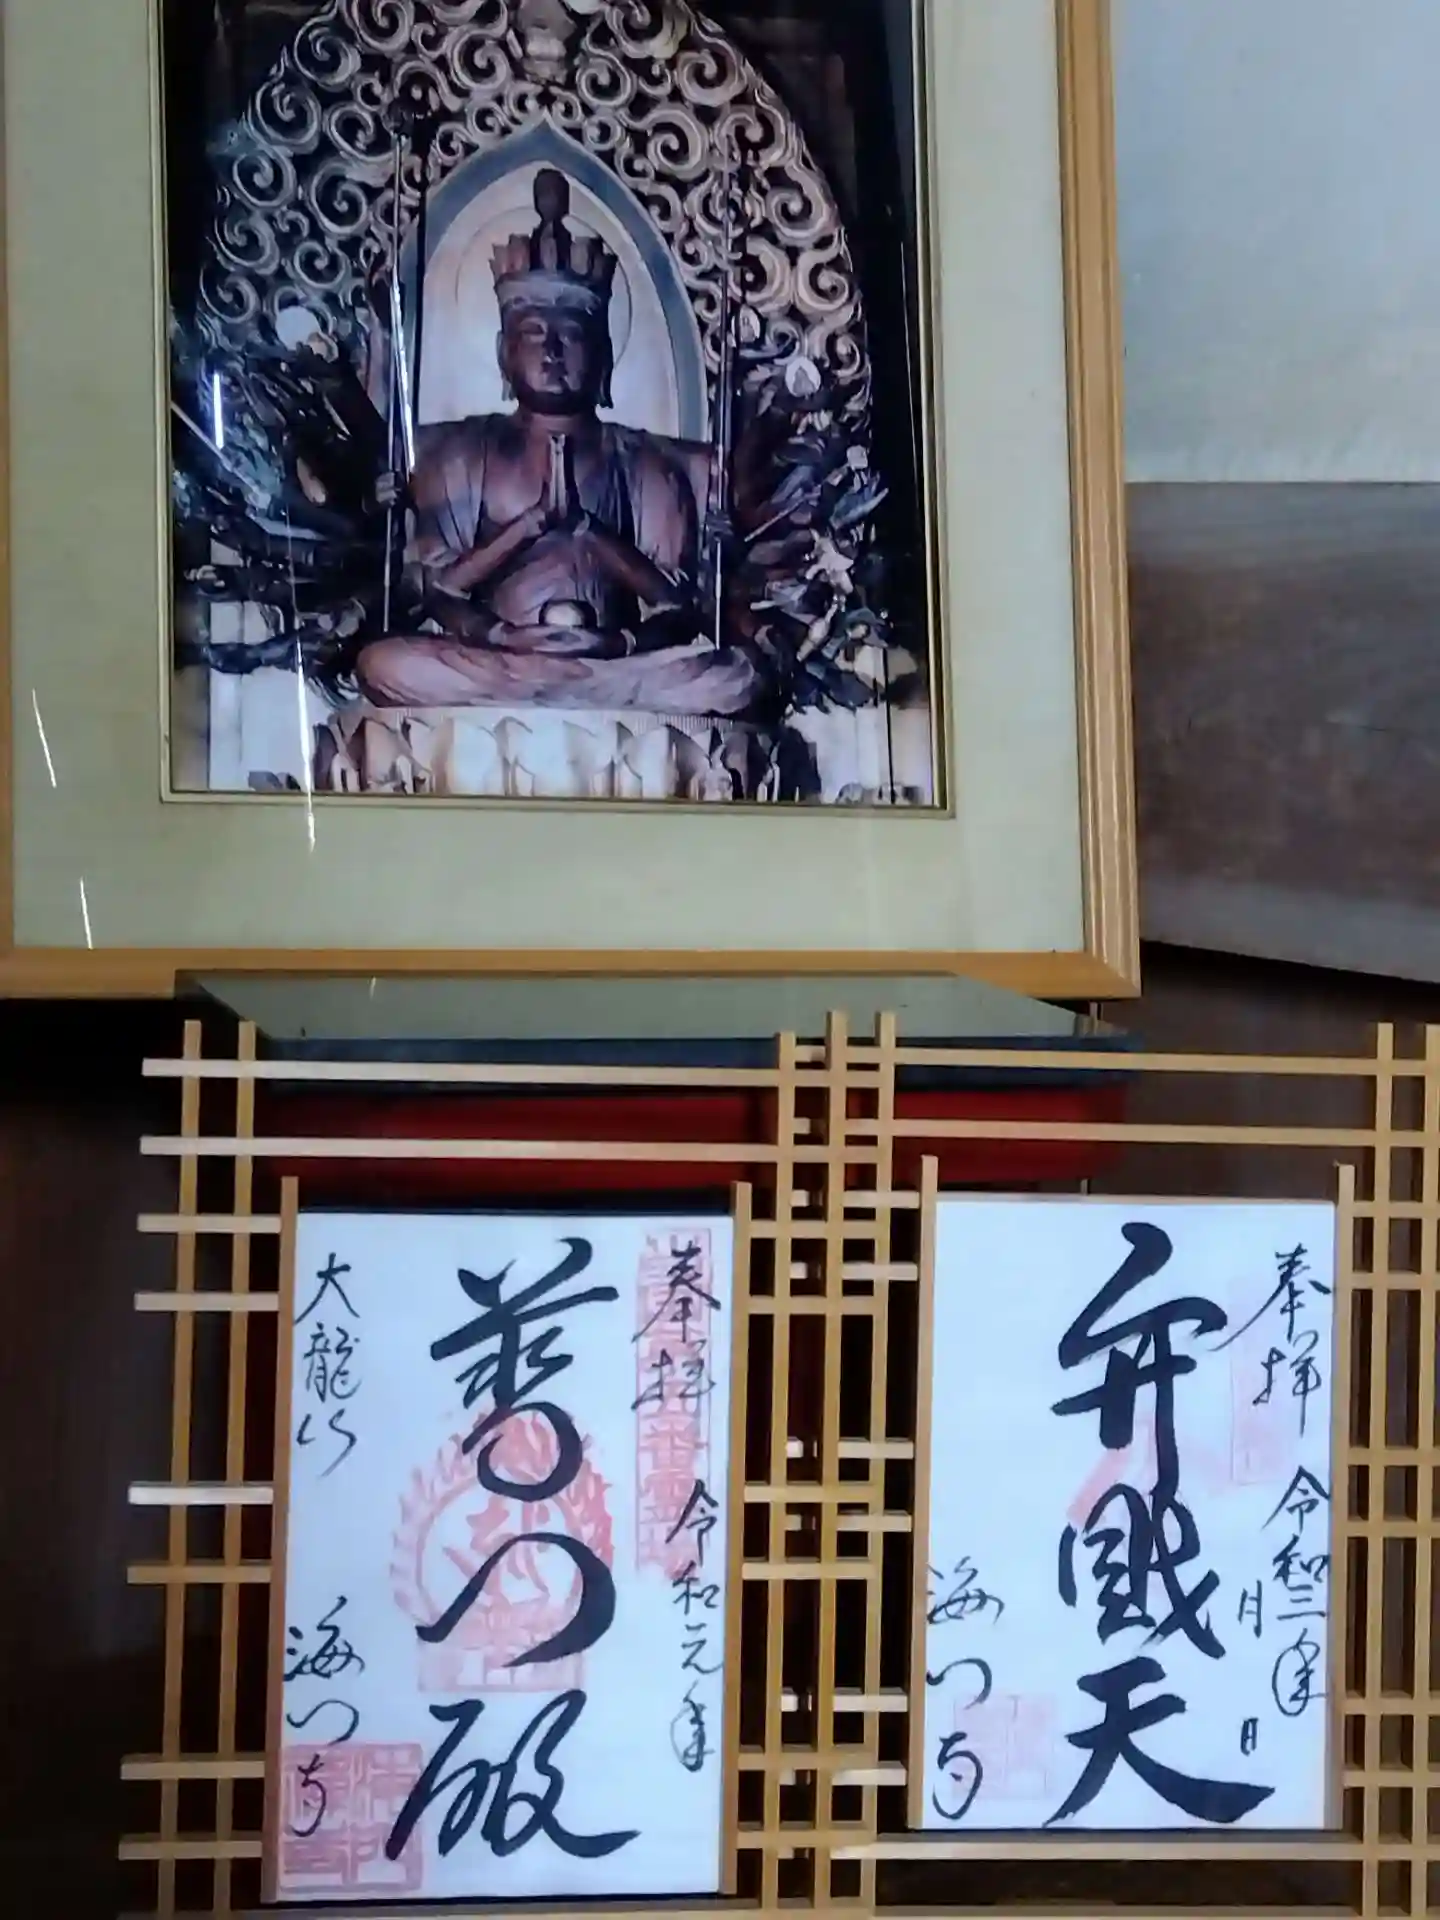 奉拝
令和三年
月
日
弁財天
海門寺
奉拝
令和元年
普門殿
大龍山
海門寺